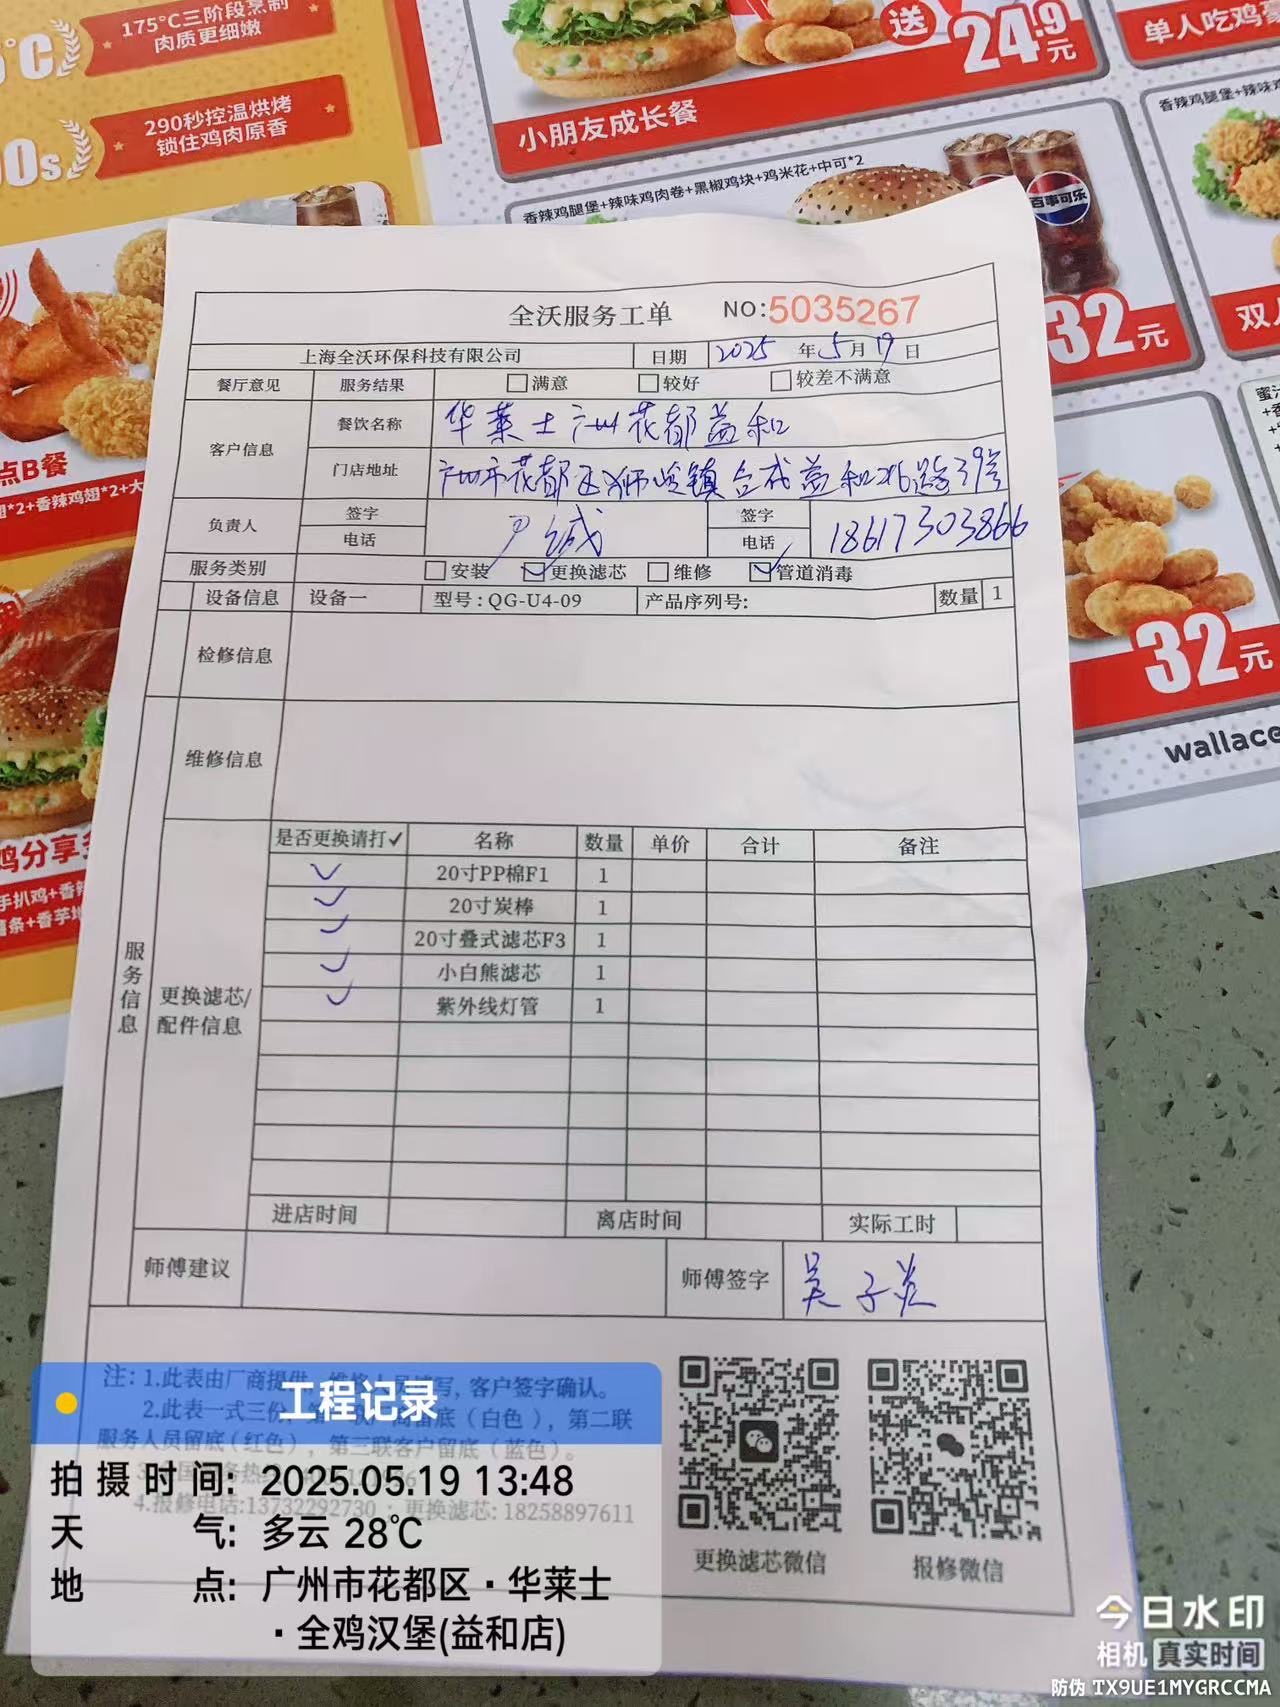 175°C三阶段烹制
肉质更细嫩
290秒控温烘烤
锁住鸡肉原香
送
24.9元
单人吃鸡
小朋友成长餐
香辣鸡腿堡+辣味鸡肉卷+黑椒鸡块+鸡米花+中可*2
香辣鸡腿堡+辣味
百事可乐
32元
双人
点B餐
*2+香辣鸡翅*2+大
32元
wallace
鸡分享
手扒鸡+香辣
薯条+香芋地
全沃服务工单 NO:5035267
上海全沃环保科技有限公司 日期 2025 年 5 月 19 日
餐厅意见 服务结果 满意 较好 较差不满意
客户信息 餐饮名称 华莱士广州花都益和
门店地址 广州市花都区狮岭镇合成益和北路39号
负责人 签字 签字
电话 电话 18617303866
服务类别 安装 更换滤芯 维修 管道消毒
设备信息 设备一 型号:QG-U4-09 产品序列号: 数量 1
检修信息
维修信息
服务信息
更换滤芯/
配件信息
是否更换请打✓ 名称 数量 单价 合计 备注
✓ 20寸PP棉F1 1
✓ 20寸炭棒 1
✓ 20寸叠式滤芯F3 1
✓ 小白熊滤芯 1
✓ 紫外线灯管 1
进店时间 离店时间 实际工时
师傅建议 师傅签字 吴子炎
注: 1.此表由厂商提供 写, 客户签字确认。
2.此表一式三份 留底(白色), 第二联
服务人员留底(红色), 第三联客户留底(蓝色)。
4.报修电话:13732292730 ; 更换滤芯: 18258897611
更换滤芯微信 报修微信
工程记录
拍摄时间: 2025.05.19 13:48
天气: 多云 28℃
地点: 广州市花都区·华莱士
·全鸡汉堡(益和店)
今日水印
相机 真实时间
防伪 TX9UE1MYGRCCMA